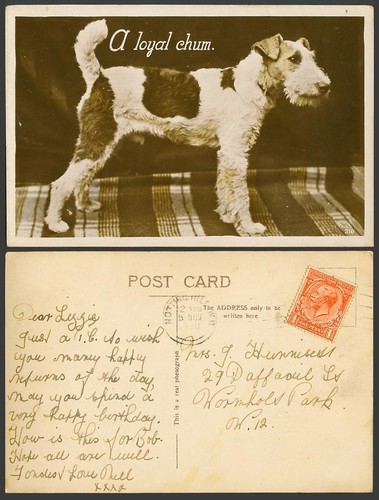 A loyal chum.
POST CARD
The ADDRESS only to be
written here.
This is a real photograph
Dear Lizzie
Just a P.C. to wish
you many happy
returns of the day
may you spend a
very happy birthday.
How is this for Bob.
Hope all are well.
Fondest Love Nell
xxxx
Mrs. J.
29 Daffodil St
Wormholt Park.
W. 12.